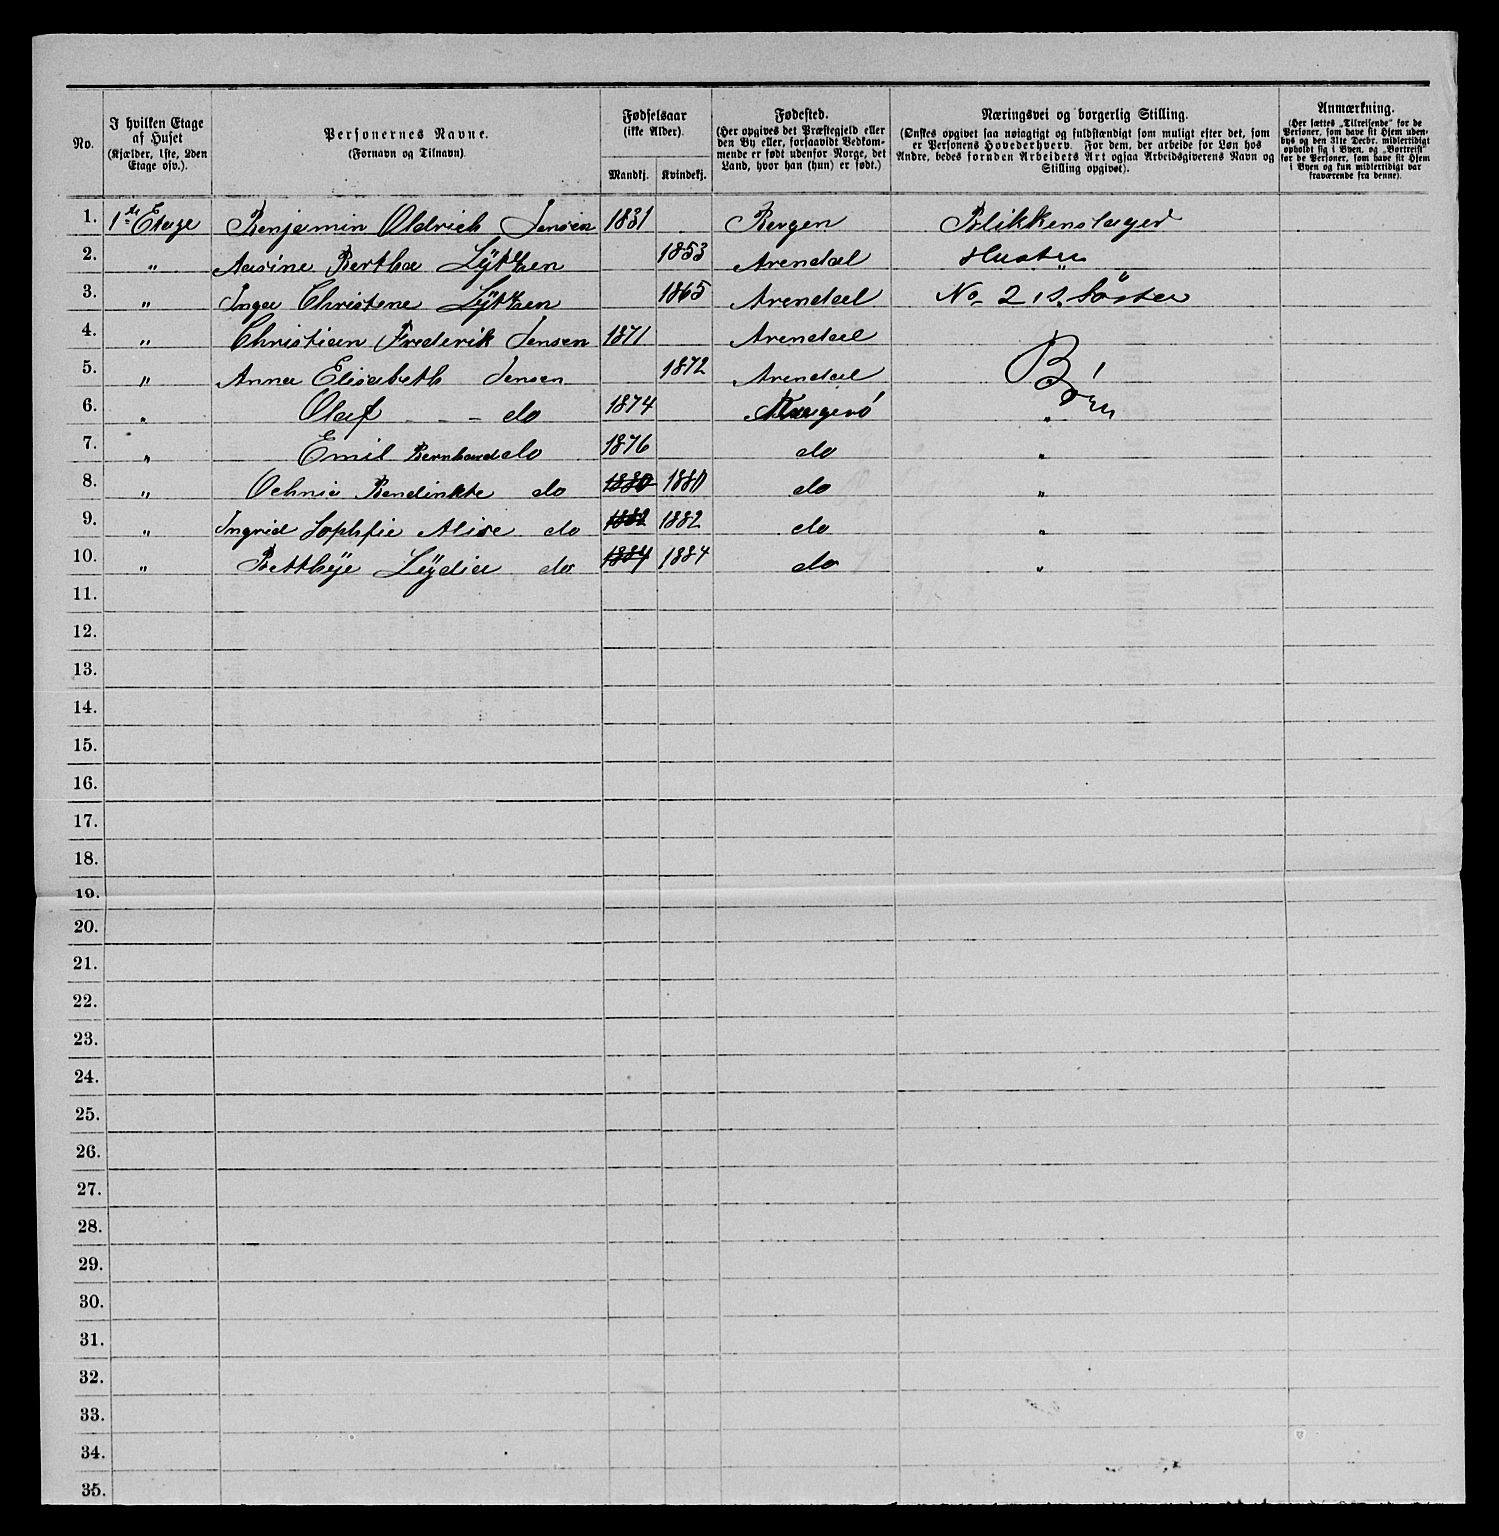 No.
I hvilken Etage af Huset (Kjælder, 1ste, 2den Etage osv.).
Personernes Navne. (Fornavn og Tilnavn).
Fødselsaar (ikke Alder).
Mandkj. Kvindekj.
Fødested. (Her opgives det Præstegjeld eller den By eller, forsaavidt Vedkommende er født udenfor Norge, det Land, hvor han (hun) er født.)
Næringsvei og borgerlig Stilling. (Ønskes opgivet saa nøiagtigt og fuldstændigt som muligt efter det, som er Personens Hovederhverv. For dem, der arbeide for Løn hos Andre, bedes foruden Arbeidets Art ogsaa Arbeidsgiverens Navn og Stilling opgivet).
Anmærkning. (Her sættes „Tilreisende“ for de Personer, som have sit Hjem udenbys og den 31te Decbr. midlertidigt opholdt sig i Byen, og „Bortreist“ for de Personer, som have sit Hjem i Byen og kun midlertidigt var fraværende fra denne).
1. 1ste Etage Benjamin Oldrich Jensen 1831 Bergen Blikkenslager
2. " Aasine Bertha Lÿtzen 1853 Arendal Hustru
3. " Inga Christene Lÿtzen 1865 Arendal No 2 's Søster
4. " Christian Frederik Jensen 1871 Arendal
5. " Anna Elisabeth Jensen 1872 Arendal Börn
6. " Olaf - - do 1874 "
7. " Emil Bernhard do 1876 do "
8. " Bendinkte do 1880 1880 do "
9. " Ingrid Sophfie Alise do 1882 1882 do "
10. " Lÿdia do 1884 1884 do "
11.
12.
13.
14.
15.
16.
17.
18.
19.
20.
21.
22.
23.
24.
25.
26.
27.
28.
29.
30.
31.
32.
33.
34.
35.